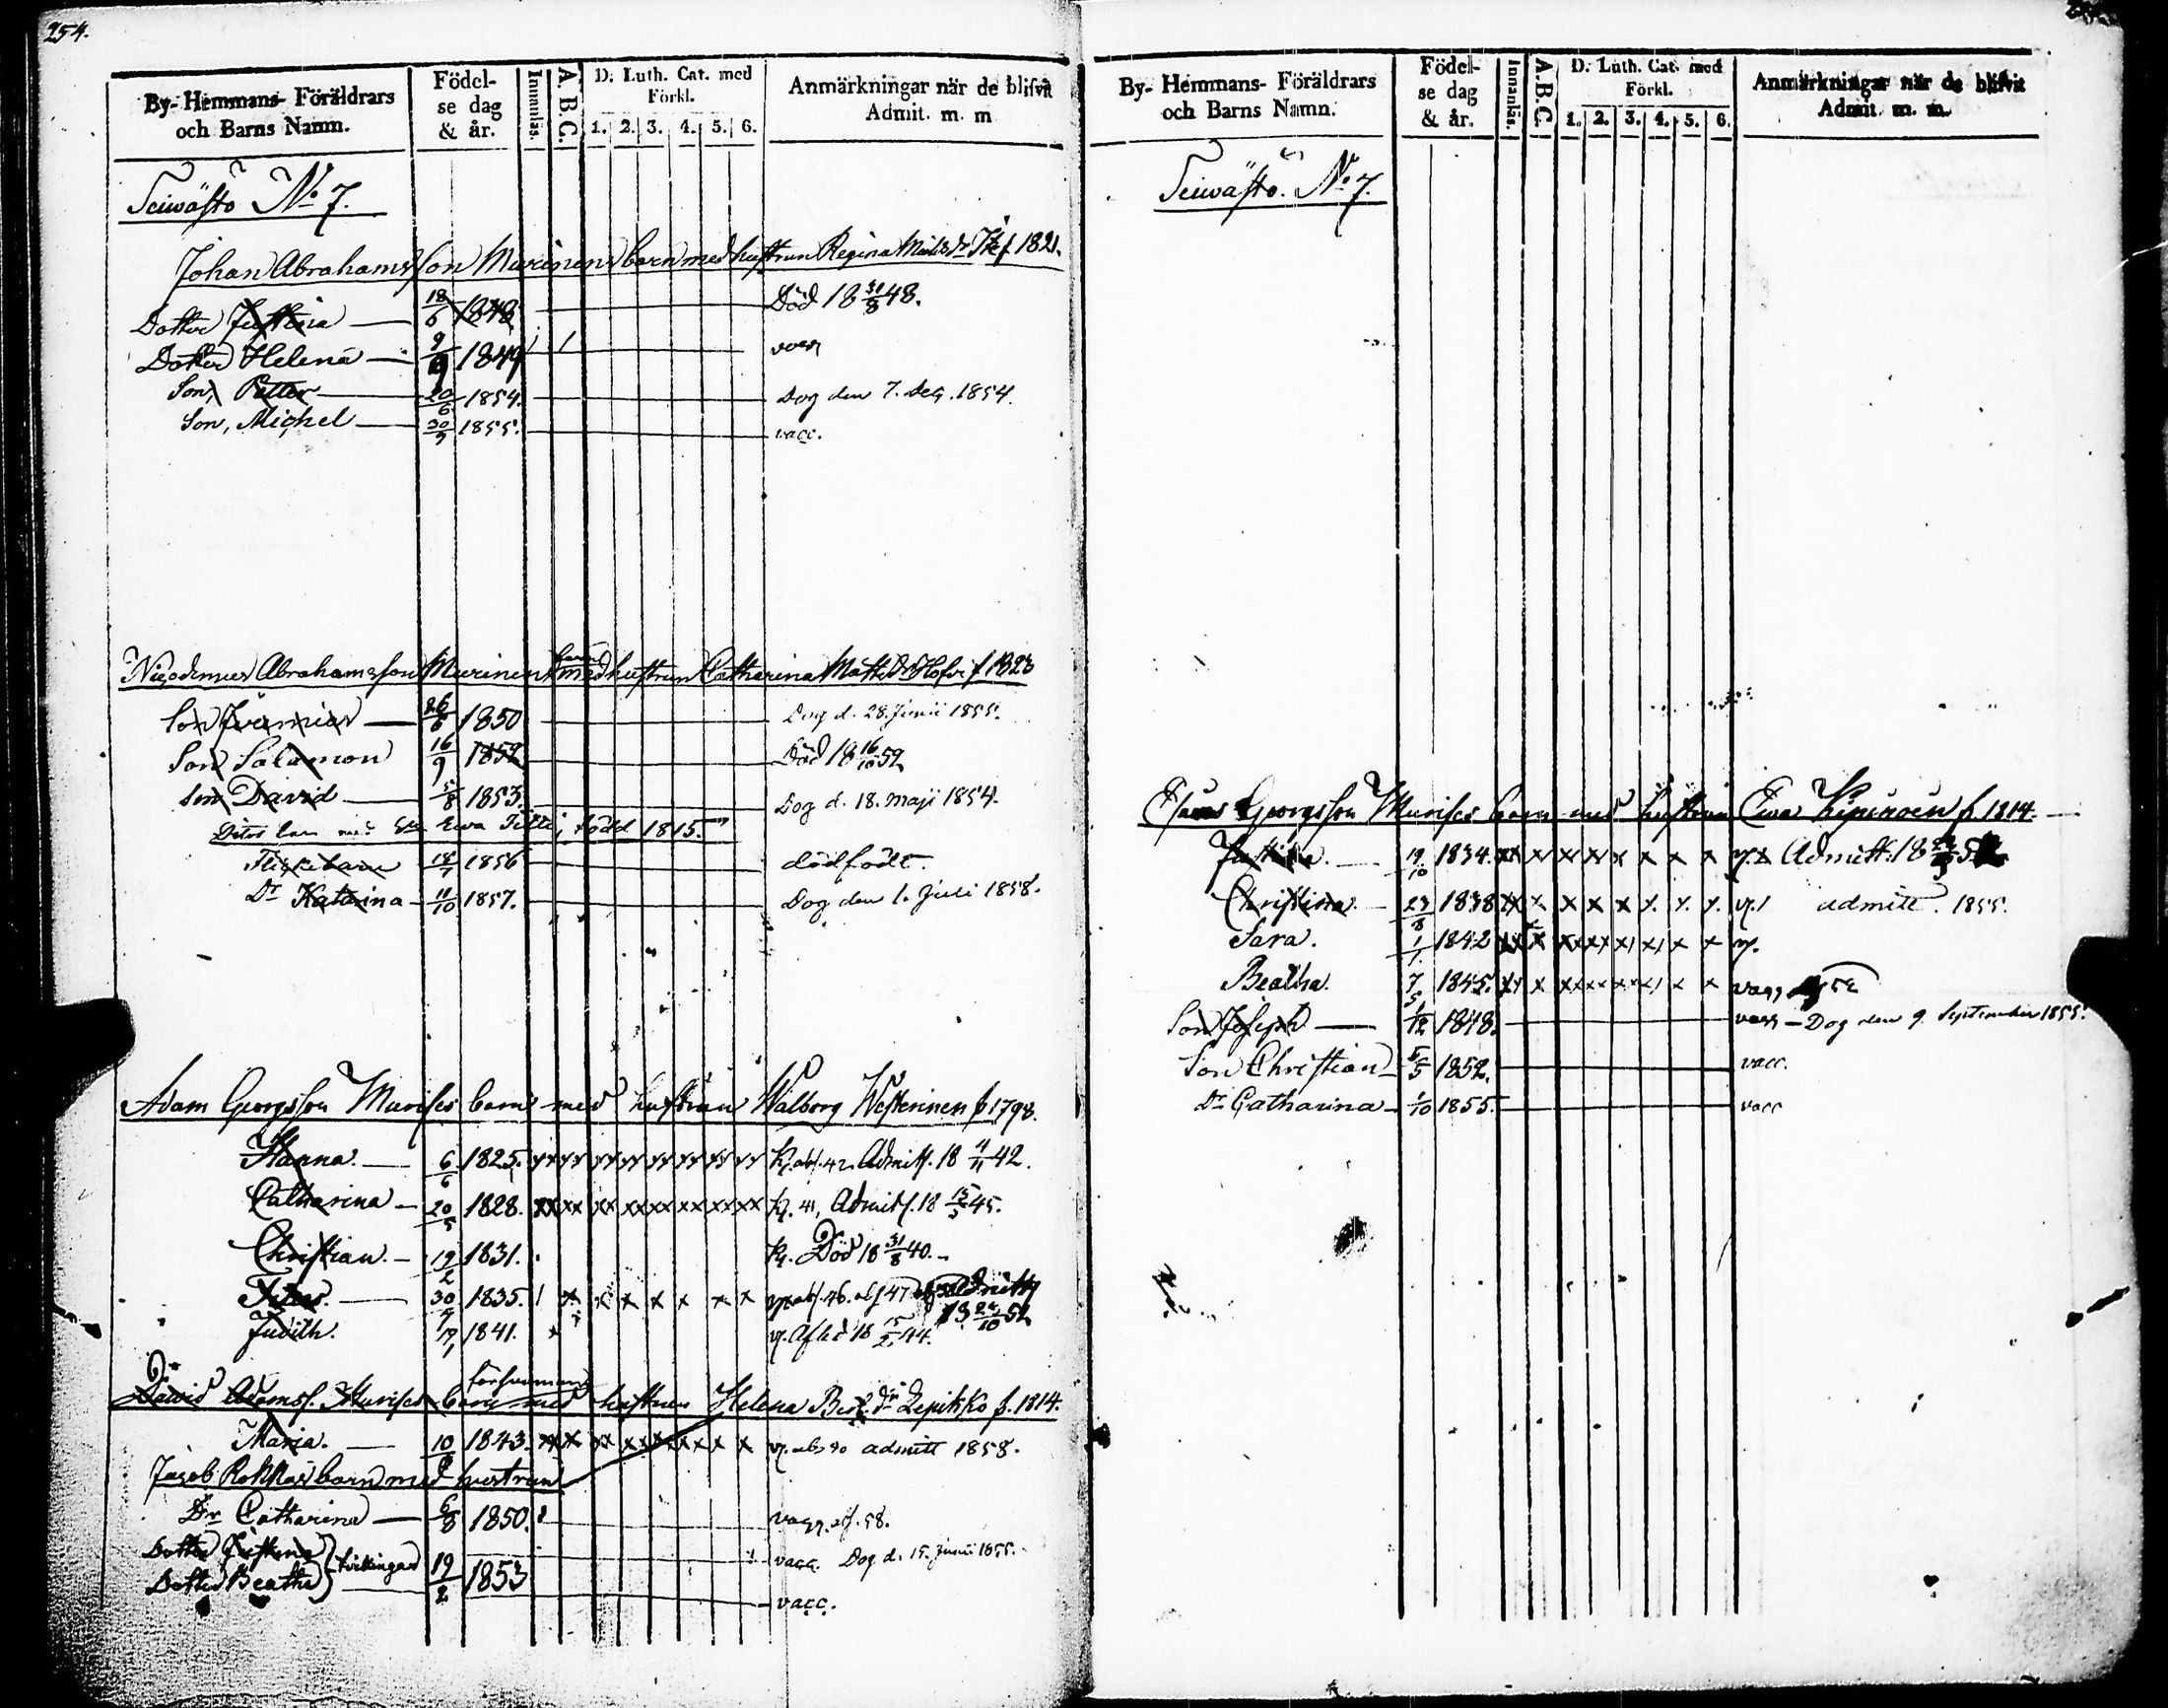 254.
By- Hemmans- Föräldrars och Barns Namn.
Födelse dag & år.
Innanläs.
A. B. C.
D. Luth. Cat. med Förkl.
1. 2. 3. 4. 5. 6.
Anmärkningar när de blifvit Admit. m. m
Seiwästo No 7.
Johan Abrahamsson Murinens barn med hustrun Regina f 1821.
Dotter Justina 18/6 1848 Död 18 31/8 48.
Dotter Helena 9/9 1849 / vacc
Son, Petter 20/6 1854. Dog den 7. Dec. 1854.
Son, Michel 30/9 1855. vacc.
Nicodemus Abrahamsson Murinens barn med hustrun Catharina Matts Dr f 1823
Son Jeremias 26/6 1850 Dog d. 28. Junii 1855.
Son Salamon 16/9 1852 Död 18 16/10 52
Son David 5/8 1853. Dog d. 18. Maji 1854.
Ditos barn med Ewa född 1815.
Flickebarn 18/7 1856 dödfödt.
Dr Katarina 11/10 1857. Dog den 1. Juli 1858.
Adam Georgsson Murises barn med hustrun Walborg Westerinen f 1798.
Hanna. 6/6 1825. xx xx xx xx xx xx xx xx Admitt. 18 4/11 42.
Catharina 20/5 1828. xx xx xx xx xx xx xx xx 41, Admitt. 18 15/5 45.
Christian. 19/2 1831. Död 18 31/8 40.
30/9 1835. / x x x x x x x abs. 46. abs 47 Admitt 18 24/10 52
Judith. 17/1 1841. x Afled 18 15/2 44.
David Adamss. Murises barn med förswunna hustrun Helena Lepikko f. 1814.
Maria. 10 1843. xx x xx xx xx x x x admitt 1858.
Jacob Rokkas barn med hustrun
Dr Catharina 6/8 1850. vacc. abs. 58.
Dotter Justina } tvillingar 19/2 1853 vacc. Dog d. 15. Junii 1855.
Dotter Beatha } vacc.
By- Hemmans- Föräldrars och Barns Namn.
Födelse dag & år.
Innanläs.
A. B. C.
D. Luth. Cat. med Förkl.
1. 2. 3. 4. 5. 6.
Anmärkningar när de blifvit Admit. m. m.
Seiwästo. No 7.
Georgsson Murises barn med hustrun Ewa f 1814.
Justina. 19/10 1834. xx x xx xx x x x x Admitt. 18
Christina. 23/8 1838 xx x x x x x. x. x. v. / admitt. 1855.
Sara. 1/1 1842 xx x xx xx x/ x/ x x v.
Beatha. 7/5 1845. xx x xx xx xx x/ x x vacc 52
Son Joseph 1/12 1848. vacc — Dog den 9. September 1855.
Son Christian 5/5 1852. vacc.
Dr Catharina 1/10 1855. vacc